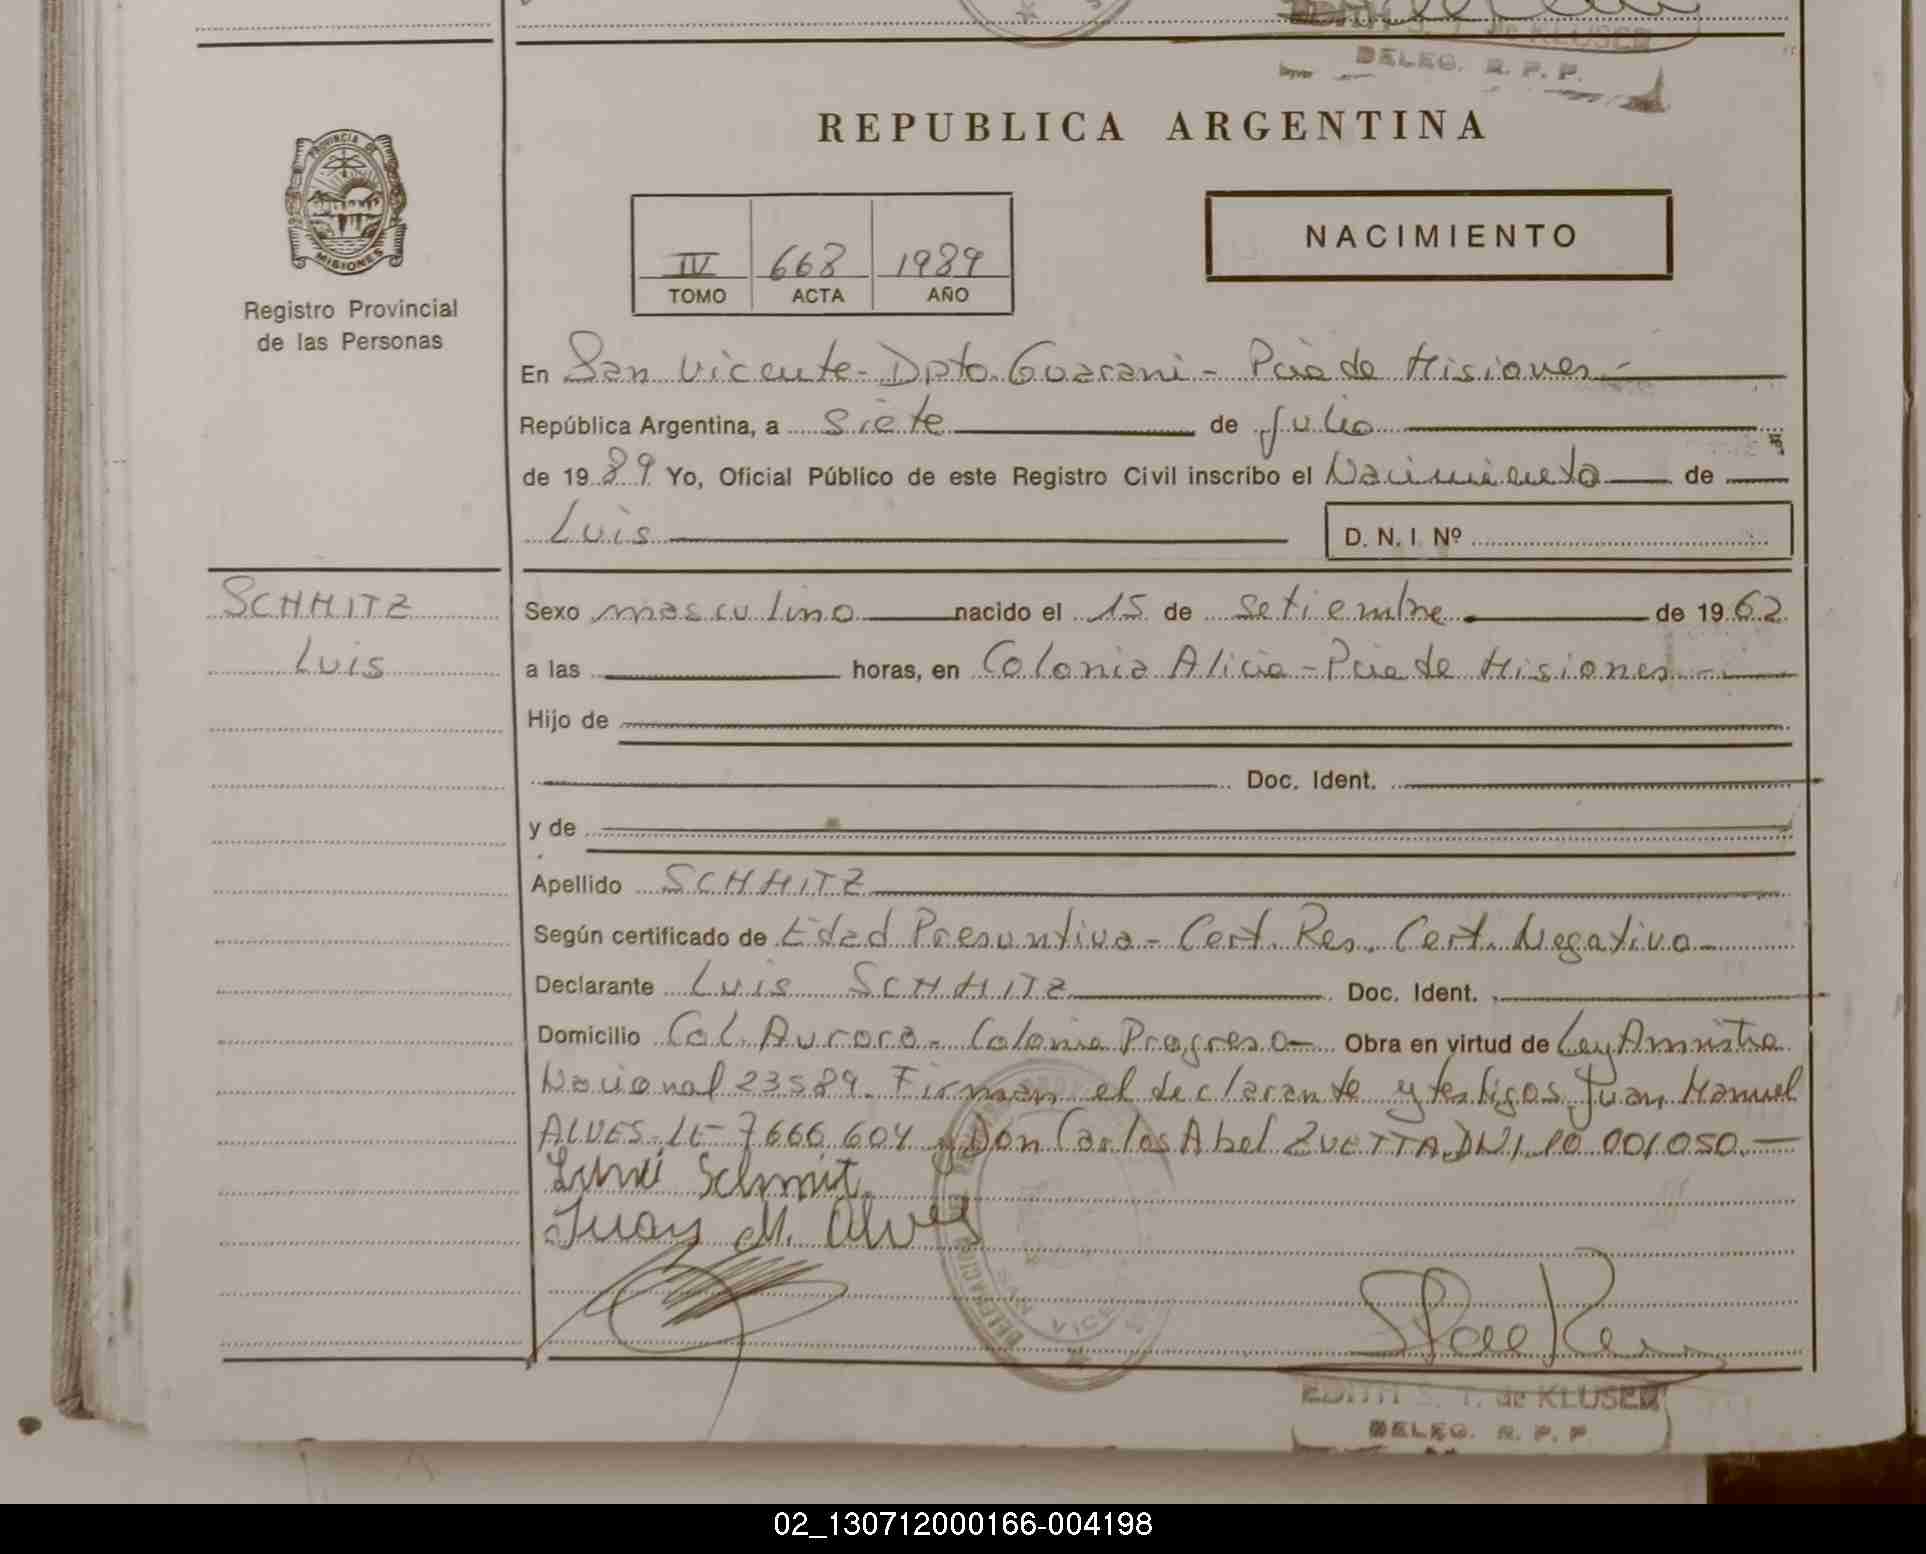 de KLUSER
DELEG. R. P. P.
REPUBLICA ARGENTINA
PROVINCIA DE
MISIONES
Registro Provincial
de las Personas
IV 668 1989
TOMO ACTA AÑO
NACIMIENTO
En San Vicente - Dpto. Guarani - Pcia de Misiones -
República Argentina, a siete de Julio
de 1989 Yo, Oficial Público de este Registro Civil inscribo el Nacimiento de
Luis D. N. I. Nº
SCHMITZ
Luis
Sexo masculino nacido el 15 de setiembre de 1962
a las horas, en Colonia Alicia - Pcia de Misiones -
Hijo de
Doc. Ident.
y de
Apellido SCHMITZ
Según certificado de Edad Presuntiva - Cert. Res. Cert. Negativo -
Declarante Luis SCHMITZ Doc. Ident.
Domicilio Col. Aurora - Colonia Progreso - Obra en virtud de Ley Amnistia
Nacional 23589. Firman el declarante y testigos Juan Manuel
ALVES - LE - 7666.604 y Don Carlos Abel ZUETTA DNI. 10.001.050. -
Schmit
Juan M. Alves
EDITH S. T. de KLUSER
DELEG. R. P. P.
02_130712000166-004198